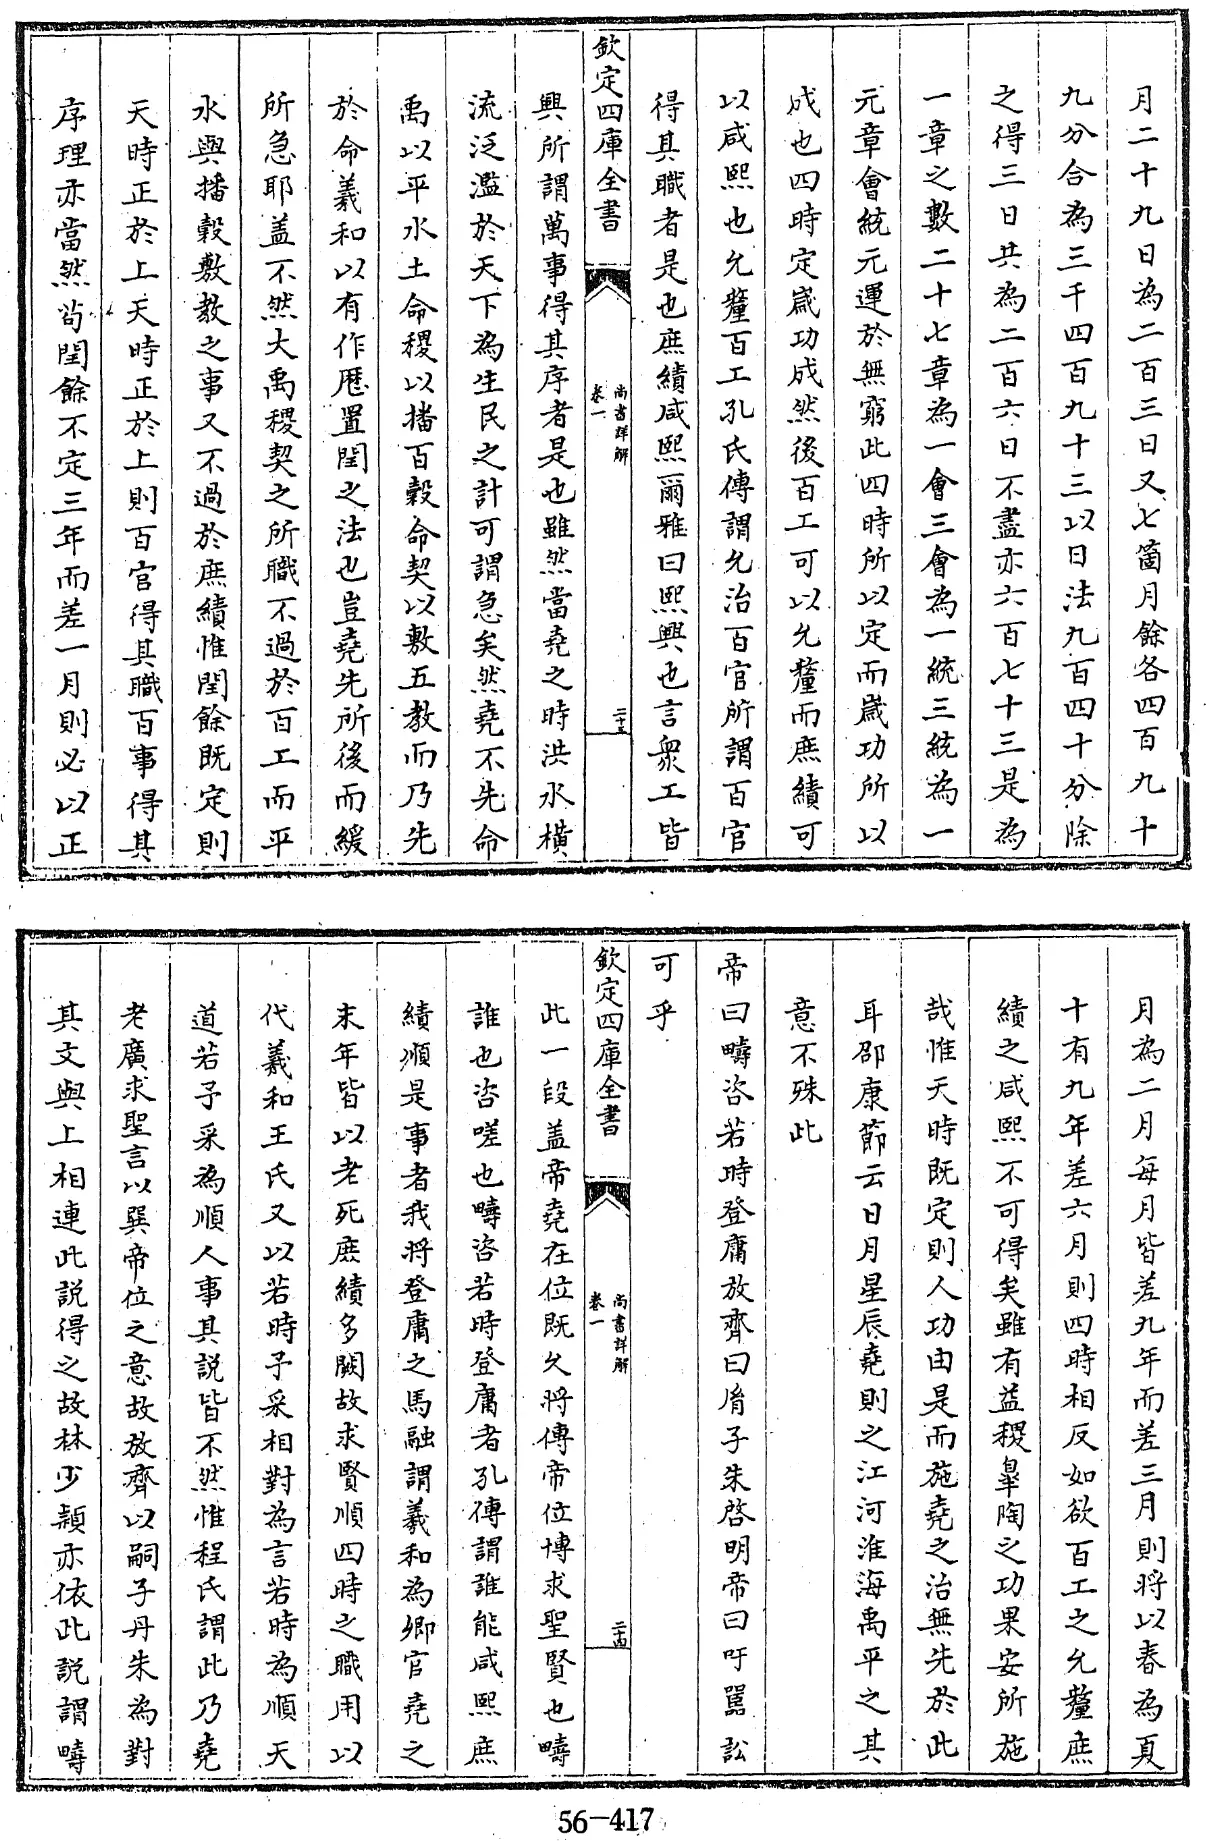 月二十九日為二百三日又七箇月餘各四百九十
九分合為三千四百九十三以日法九百四十分除
之得三日共為二百六日不盡亦六百七十三是為
一章之數二十七章為一會三會為一統三統為一
元章會統元運於無窮此四時所以定而嵗功所以
成也四時定嵗功成然後百工可以允釐而庶績可
以咸熙也允釐百工孔氏傳謂允治百官所謂百官
得其職者是也庶績咸熙爾雅曰熙興也言衆工皆
欽定四庫全書
尚書詳解
卷一
二十三
興所謂萬事得其序者是也雖然當堯之時洪水橫
流泛濫於天下為生民之計可謂急矣然堯不先命
禹以平水土命稷以播百穀命契以敷五教而乃先
於命羲和以有作厯置閏之法也豈堯先所後而緩
所急耶盖不然大禹稷契之所職不過於百工而平
水與播穀敷教之事又不過於庶績惟閏餘既定則
天時正於上天時正於上則百官得其職百事得其
序理亦當然茍閏餘不定三年而差一月則必以正
月為二月每月皆差九年而差三月則將以春為夏
十有九年差六月則四時相反如欲百工之允釐庶
績之咸熙不可得矣雖有益稷臯陶之功果安所施
哉惟天時既定則人功由是而施堯之治無先於此
耳邵康節云日月星辰堯則之江河淮海禹平之其
意不殊此
帝曰疇咨若時登庸放齊曰胤子朱啓明帝曰吁嚚訟
可乎
欽定四庫全書
尚書詳解
卷一
二十四
此一段盖帝堯在位既久將傳帝位博求聖賢也疇
誰也咨嗟也疇咨若時登庸者孔傳謂誰能咸熙庶
績順是事者我將登庸之馬融謂羲和為卿官堯之
末年皆以老死庶績多闕故求賢順四時之職用以
代羲和王氏又以若時予采相對為言若時為順天
道若予采為順人事其說皆不然惟程氏謂此乃堯
老廣求聖言以巽帝位之意故放齊以嗣子丹朱為對
其文與上相連此説得之故林少穎亦依此説謂疇
56-417